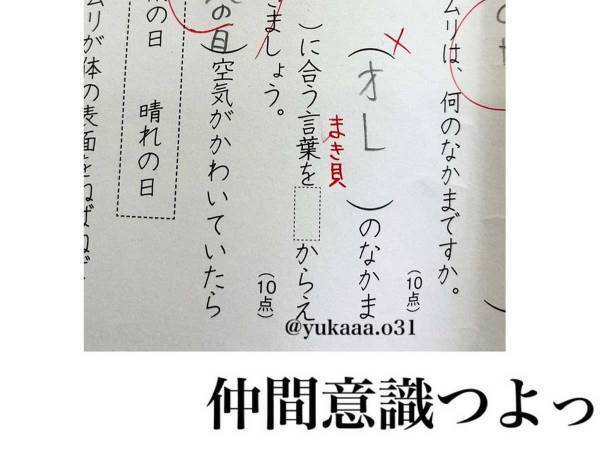 ムリは、何のなかまですか。
(10点)
(オレ)のなかま
まき貝
)に合う言葉を からえ
(10点)
きましょう。
の日)空気がかわいていたら
晴れの日
の日
ムリが体の表面をねばねば
@yukaaa.o31
仲間意識つよっ